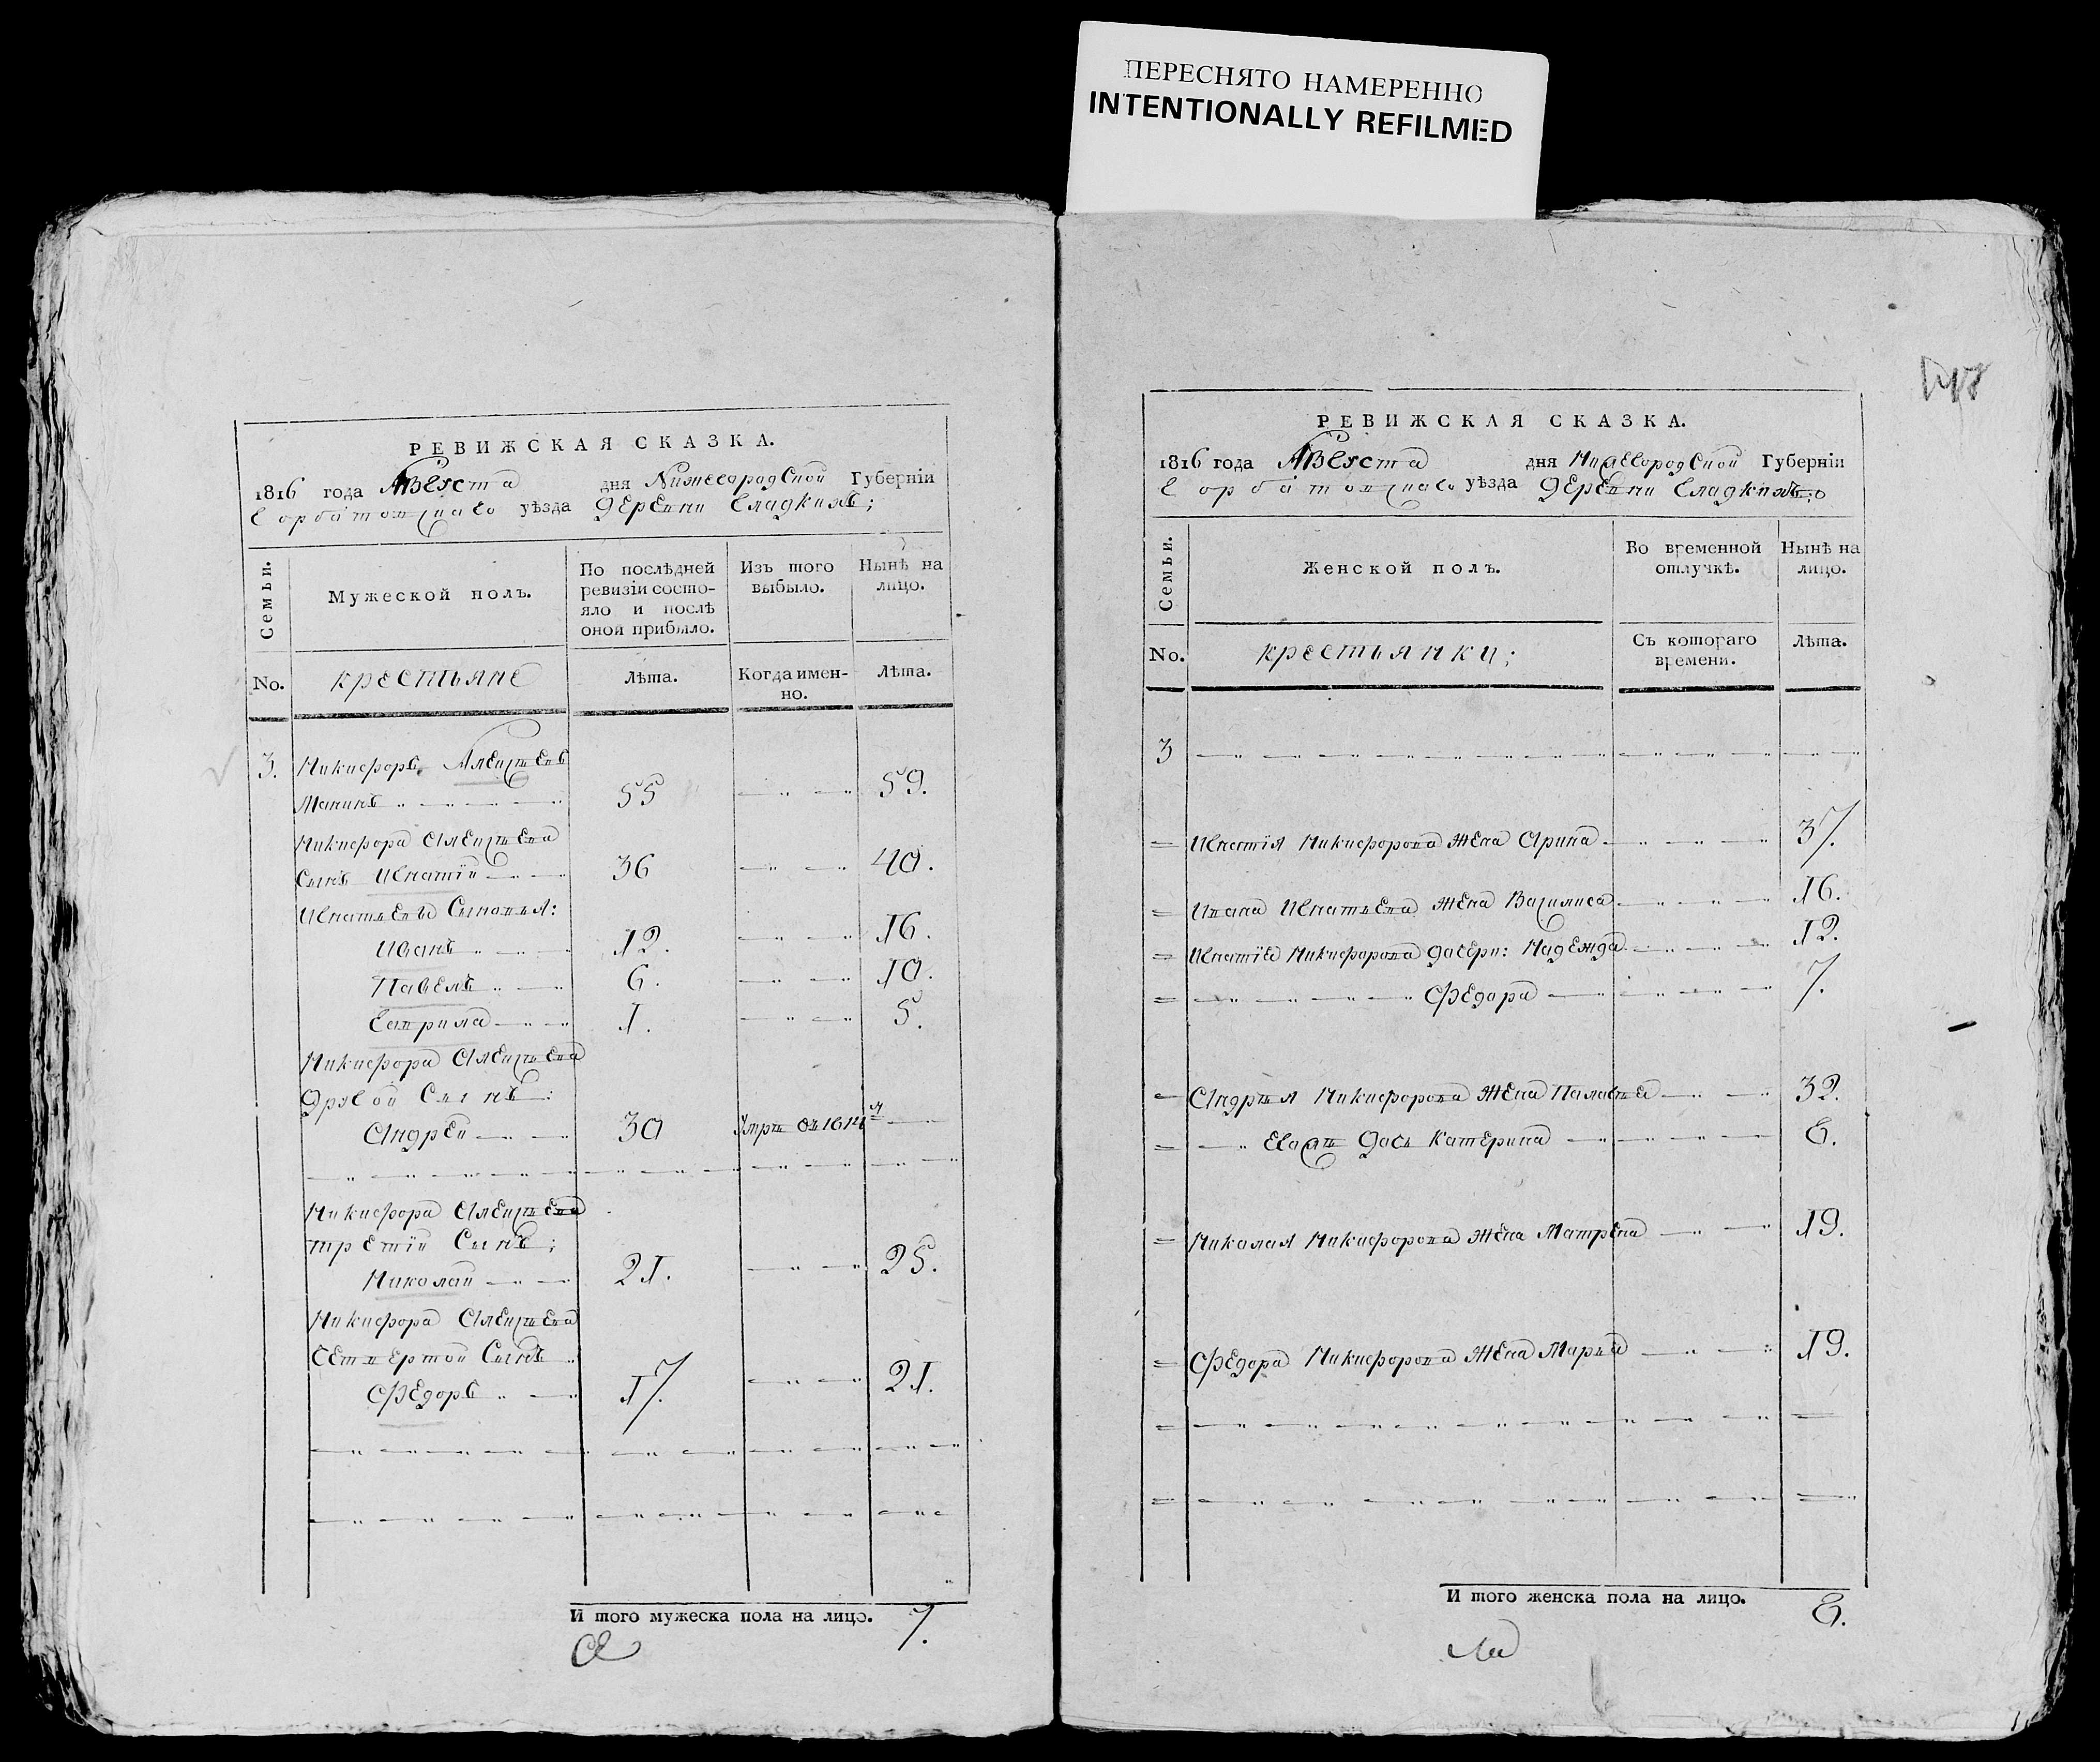 ПЕРЕСНЯТО НАМЕРЕННО
INTENTIONALLY REFILMED
РЕВИЖСКАЯ СКАЗКА.
1816 года Августа дня Нижегородской Губернїи
Горбатовскаго уѣзда деревни Гладкихъ;
Семьи.
Мужеской полъ.
По послѣдней
ревизїи состо-
яло и послѣ
оной прибыло.
Изъ того
выбыло.
Нынѣ на
лицо.
No.
крестьяне
Лѣта.
Когда имен-
но.
Лѣта.
3. Никифоръ Алексѣевъ
55 59.
Никифора Алексѣева
Сынъ Игнатїй 36 40.
Игнатьевы Сыновья:
Иванъ 12. 16.
Павелъ 6. 10.
Гаврила 1. 5.
Никифора Алексѣева
Другой Сынъ:
Андрей 30 Умре въ 1814м
Никифора Алексѣева
третїй Сынъ;
Николай 21. 25.
Никифора Алексѣева
Четвертой Сынъ
Федоръ 17. 21.
И того мужеска пола на лицо. 7.
РЕВИЖСКАЯ СКАЗКА.
1816 года Августа дня Нижегородской Губернїи
Горбатовскаго уѣзда деревни Гладкихъ;
Семьи.
Женской полъ.
Во временной
отлучкѣ.
Нынѣ на
лицо.
No.
крестьянки;
Съ котораго
времени.
Лѣта.
3
Игнатїя Никифорова жена Арина 37.
Ивана Игнатьева жена Василиса 16.
Игнатїя Никифорова дочери: Надежда 12.
Федора 7.
Андрѣя Никифорова жена Палагѣа 32.
Евоя дочь Катерина 8.
Николая Никифорова жена Матрена 19.
Федора Никифорова жена Марья 19.
И того женска пола на лицо. 8.